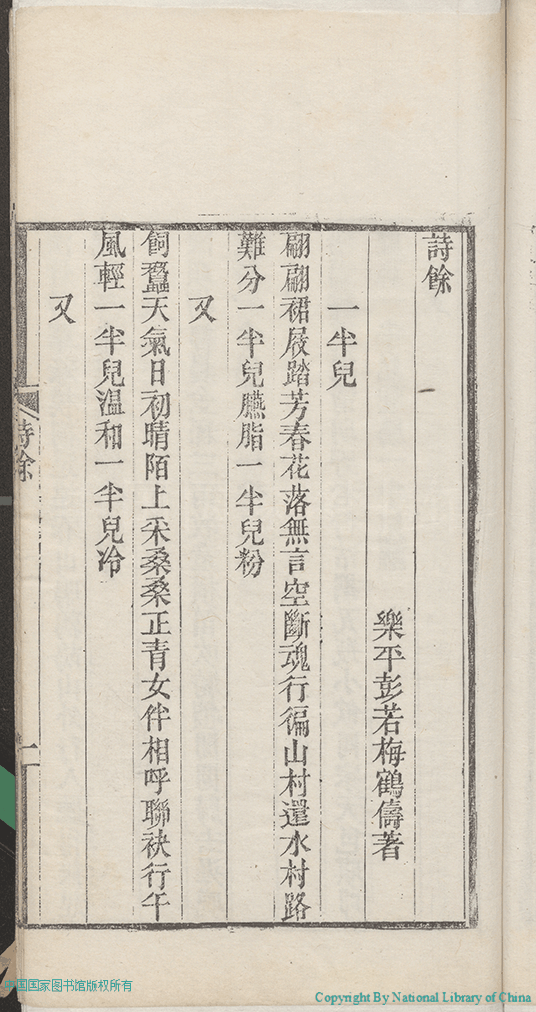 詩餘
樂平彭若梅鶴儔著
一半兒
翩翩裙屐踏芳春花落無言空斷魂行徧山村還水村路
難分一半兒臙脂一半兒粉
又
飼蠶天氣日初晴陌上采桑桑正青女伴相呼聯袂行午
風輕一半兒溫和一半兒冷
又
詩餘
一
中国国家图书馆版权所有
Copyright By National Library of China